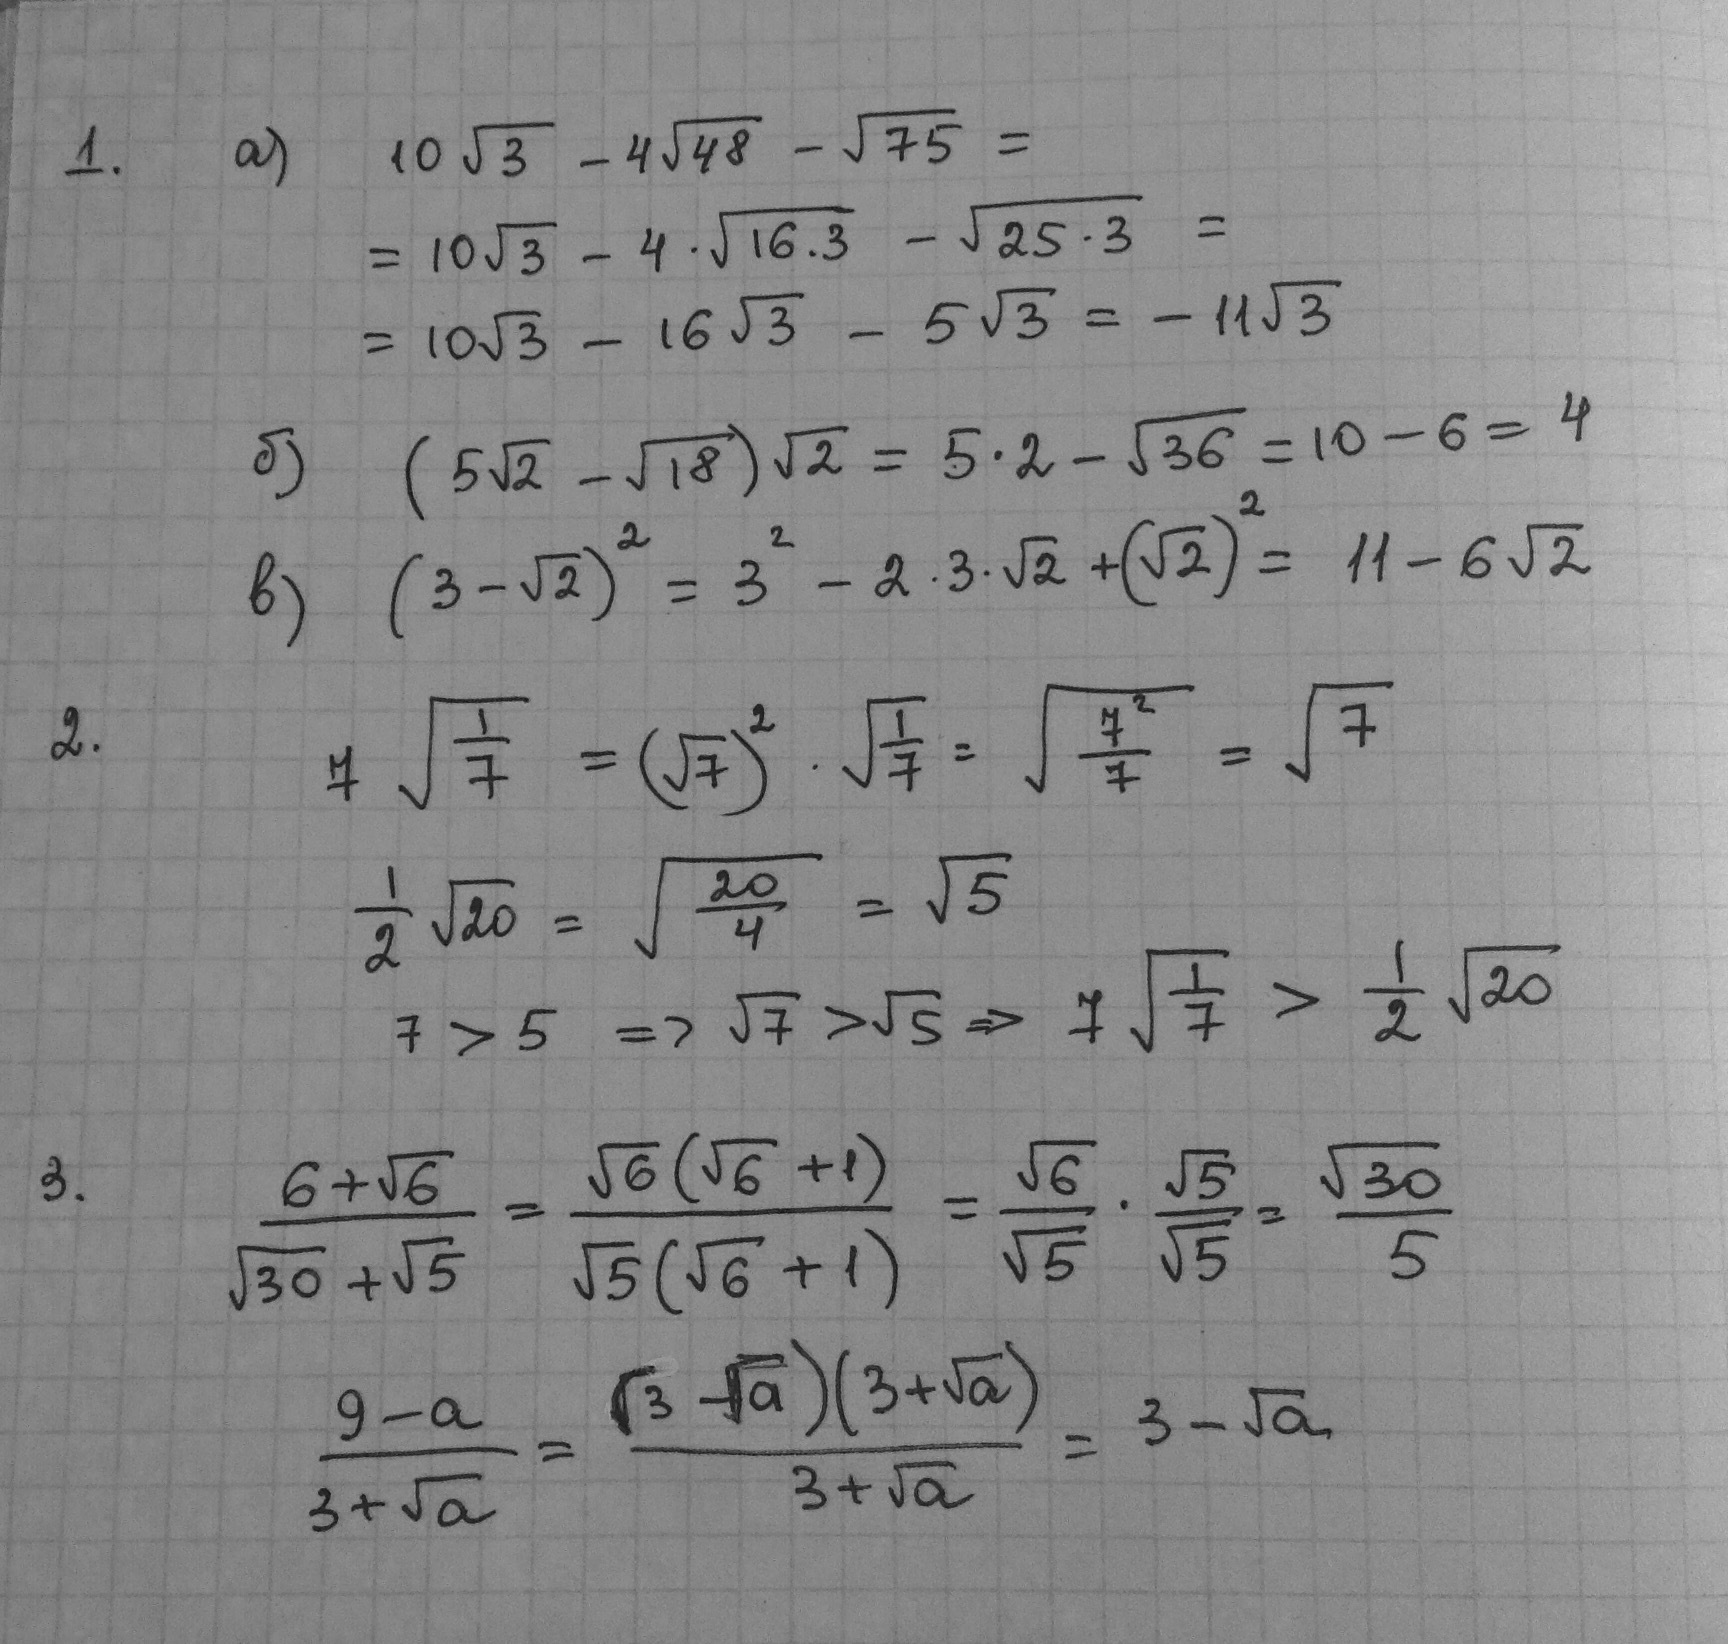 1. а) 10√3 − 4√48 − √75 =
= 10√3 − 4·√(16·3) − √(25·3) =
= 10√3 − 16√3 − 5√3 = −11√3
б) (5√2 − √18)√2 = 5·2 − √36 = 10 − 6 = 4
в) (3 − √2)² = 3² − 2·3·√2 + (√2)² = 11 − 6√2
2. 7√(1/7) = (√7)² · √(1/7) = √(7²/7) = √7
1/2 √20 = √(20/4) = √5
7 > 5 => √7 > √5 => 7√(1/7) > 1/2 √20
3. (6+√6)/(√30+√5) = √6(√6+1)/√5(√6+1) = √6/√5 · √5/√5 = √30/5
(9−a)/(3+√a) = (3−√a)(3+√a)/(3+√a) = 3−√a